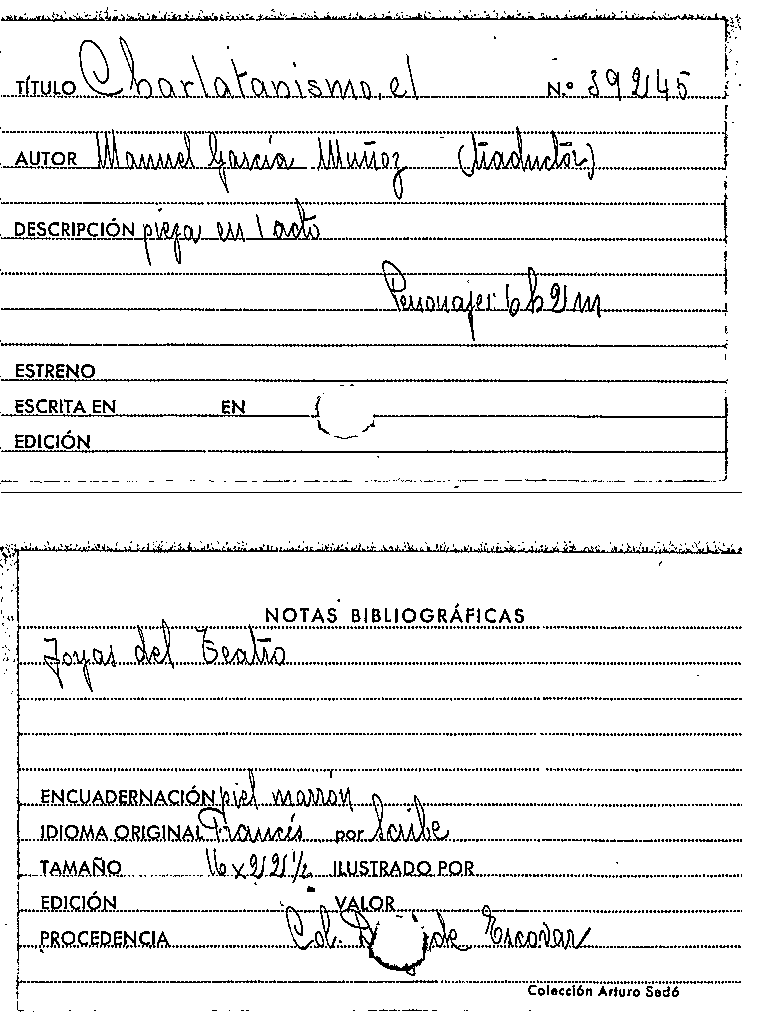 TÍTULO Charlatanismo, el N.º 39245
AUTOR Manuel García Muñoz (traductor)
DESCRIPCIÓN pieza en 1 acto
Personajes: 6 h 2 m
ESTRENO
ESCRITA EN EN
EDICIÓN
NOTAS BIBLIOGRÁFICAS
Joyas del Teatro
ENCUADERNACIÓN piel marrón
IDIOMA ORIGINAL Francés por Scribe
TAMAÑO 16 x 22 1/2 ILUSTRADO POR
EDICIÓN VALOR
PROCEDENCIA Col. de Escovar
Colección Arturo Sedó